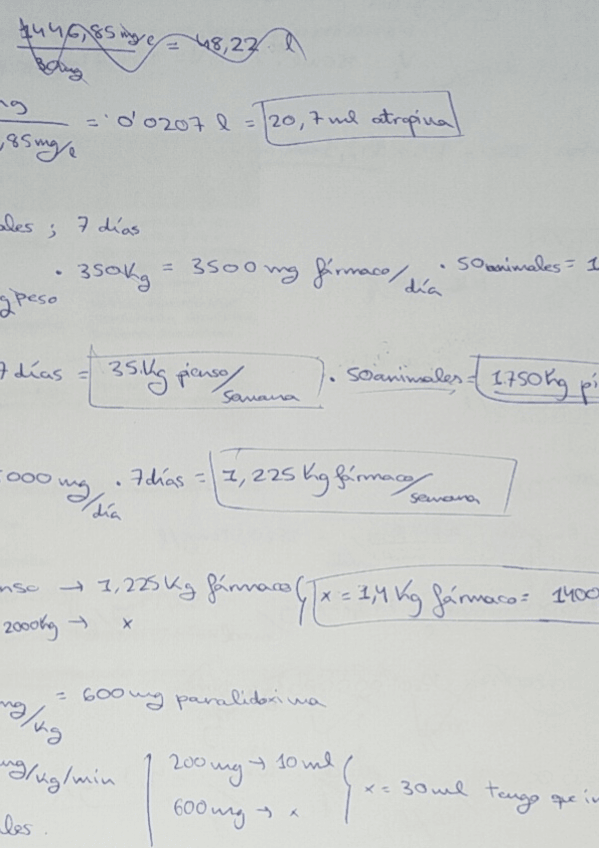 1446,85 mg/l = 48,22 l
30mg
mg = 0'0207 l = 20,7 ml atropina
,85 mg/l
ales ; 7 días
· 350Kg = 3500 mg fármaco/día · 50 animales = 1
g peso
7 días = 35 Kg pienso/semana · 50 animales = 1.750 Kg pi
000 mg/día · 7 días = 1,225 Kg fármaco/semana
nso → 1,225 Kg fármaco
2000Kg → x
x = 1,4 Kg fármaco = 1400
mg/kg = 600 mg pralidoxima
mg/kg/min
ales.
200 mg → 10 ml
600 mg → x
x = 30 ml tengo que in